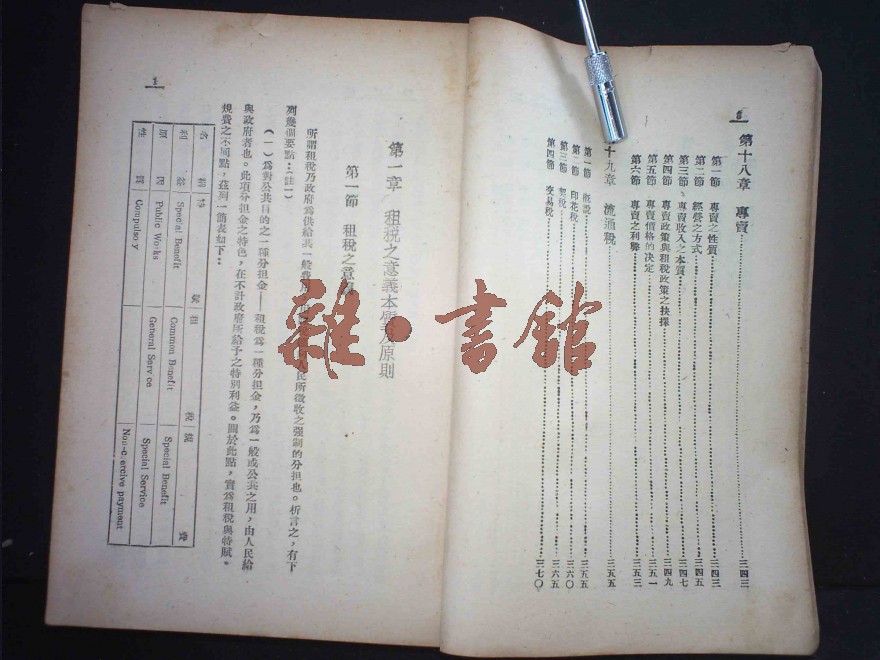 8
第十八章 專賣……三四三
第一節 專賣之性質……三四三
第二節 經營之方式……三四五
第三節 專賣收入之本質……三四七
第四節 專賣政策與租稅政策之抉擇……三四九
第五節 專賣價格的決定……三五一
第六節 專賣之利弊……三五三
十九章 流通稅……三五五
第一節 概說……三五五
第二節 印花稅……三六〇
第三節 契稅……三六五
第四節 交易稅……三七〇
雜·書館
1
第一章 租稅之意義本質及原則
第一節 租稅之意
所謂租稅乃政府爲供給其一般費用 人民所徵收之强制的分担也。析言之,有下
列幾個要點:(註一)
(一)爲對公共目的之一種分担金——租稅爲一種分担金,乃爲一般或公共之用,由人民給
與政府者也。此項分担金之特色,在不計政府所給予之特別利益。關於此點,實爲租稅與特賦。
規費之不同點,茲列一簡表如下:
名稱 特賦 租稅 規費
利益 Special Benefit Common Benefit Special Benefit
原因 Public Works General Service Special Service
性質 Compulsory Non-Coercive payment